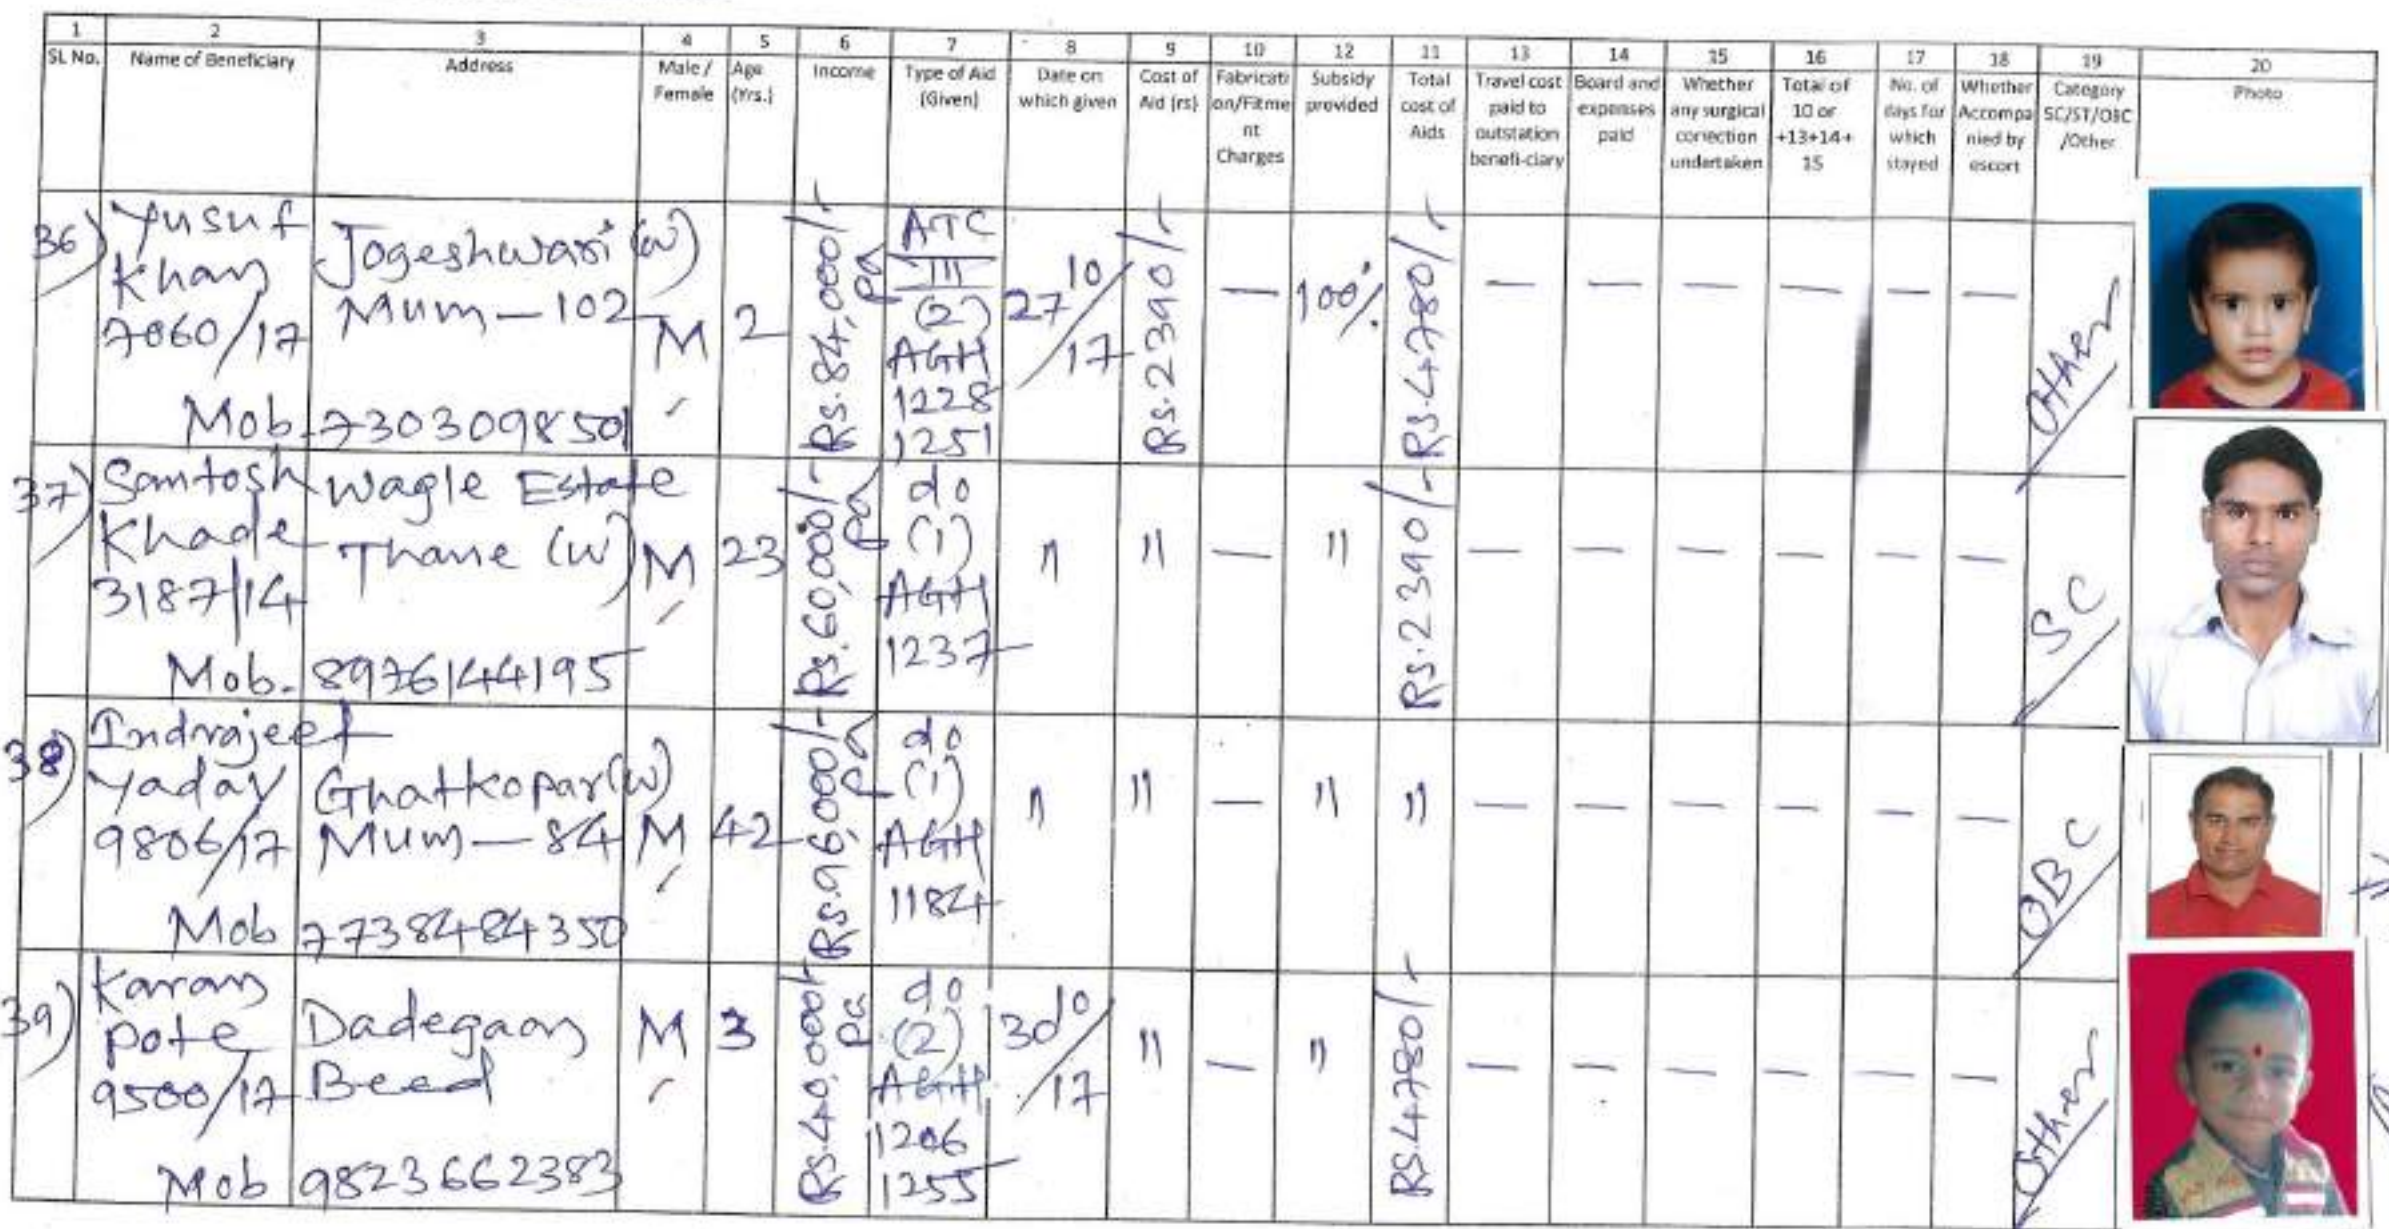 1 2 3 4 5 6 7 8 9 10 12 11 13 14 15 16 17 18 19 20
SL No. Name of Beneficiary Address Male / Female Age (Yrs.) Income Type of Aid (Given) Date on which given Cost of Aid (rs) Fabricati on/Fitme nt Charges Subsidy provided Total cost of Aids Travel cost paid to outstation benefi-ciary Board and expenses paid Whether any surgical correction undertaken Total of 10 or +13+14+ 15 No. of days for which stayed Whether Accompa nied by escort Category SC/ST/OBC /Other Photo
36) Yusuf Khan 7060/17 Jogeshwari (W) Mum-102 M 2 Rs.84,000/- Pa ATC III (2) AGH 1228 1251 27/10/17 Rs.2390/- — 100% Rs.4780/- — — — — — — Other
Mob. 7303098501
37) Santosh Khade 3187/14 Wagle Estate Thane (W) M 23 Rs.60,000/- Pa do (1) AGH 1237 " " — " Rs.2390/- — — — — — — SC
Mob. 8976144195
38) Indrajeet Yadav 9806/17 Ghatkopar (W) Mum-84 M 42 Rs.96,000/- Pa do (1) AGH 1184 " " — " " — — — — — — OBC
Mob 7738484350
39) Karan Pote 9500/17 Dadegaon Beed M 3 Rs.40,000/- Pa do (2) AGH 1206 1255 30/10/17 " — " Rs.4780/- — — — — — — Other
Mob 9823662383